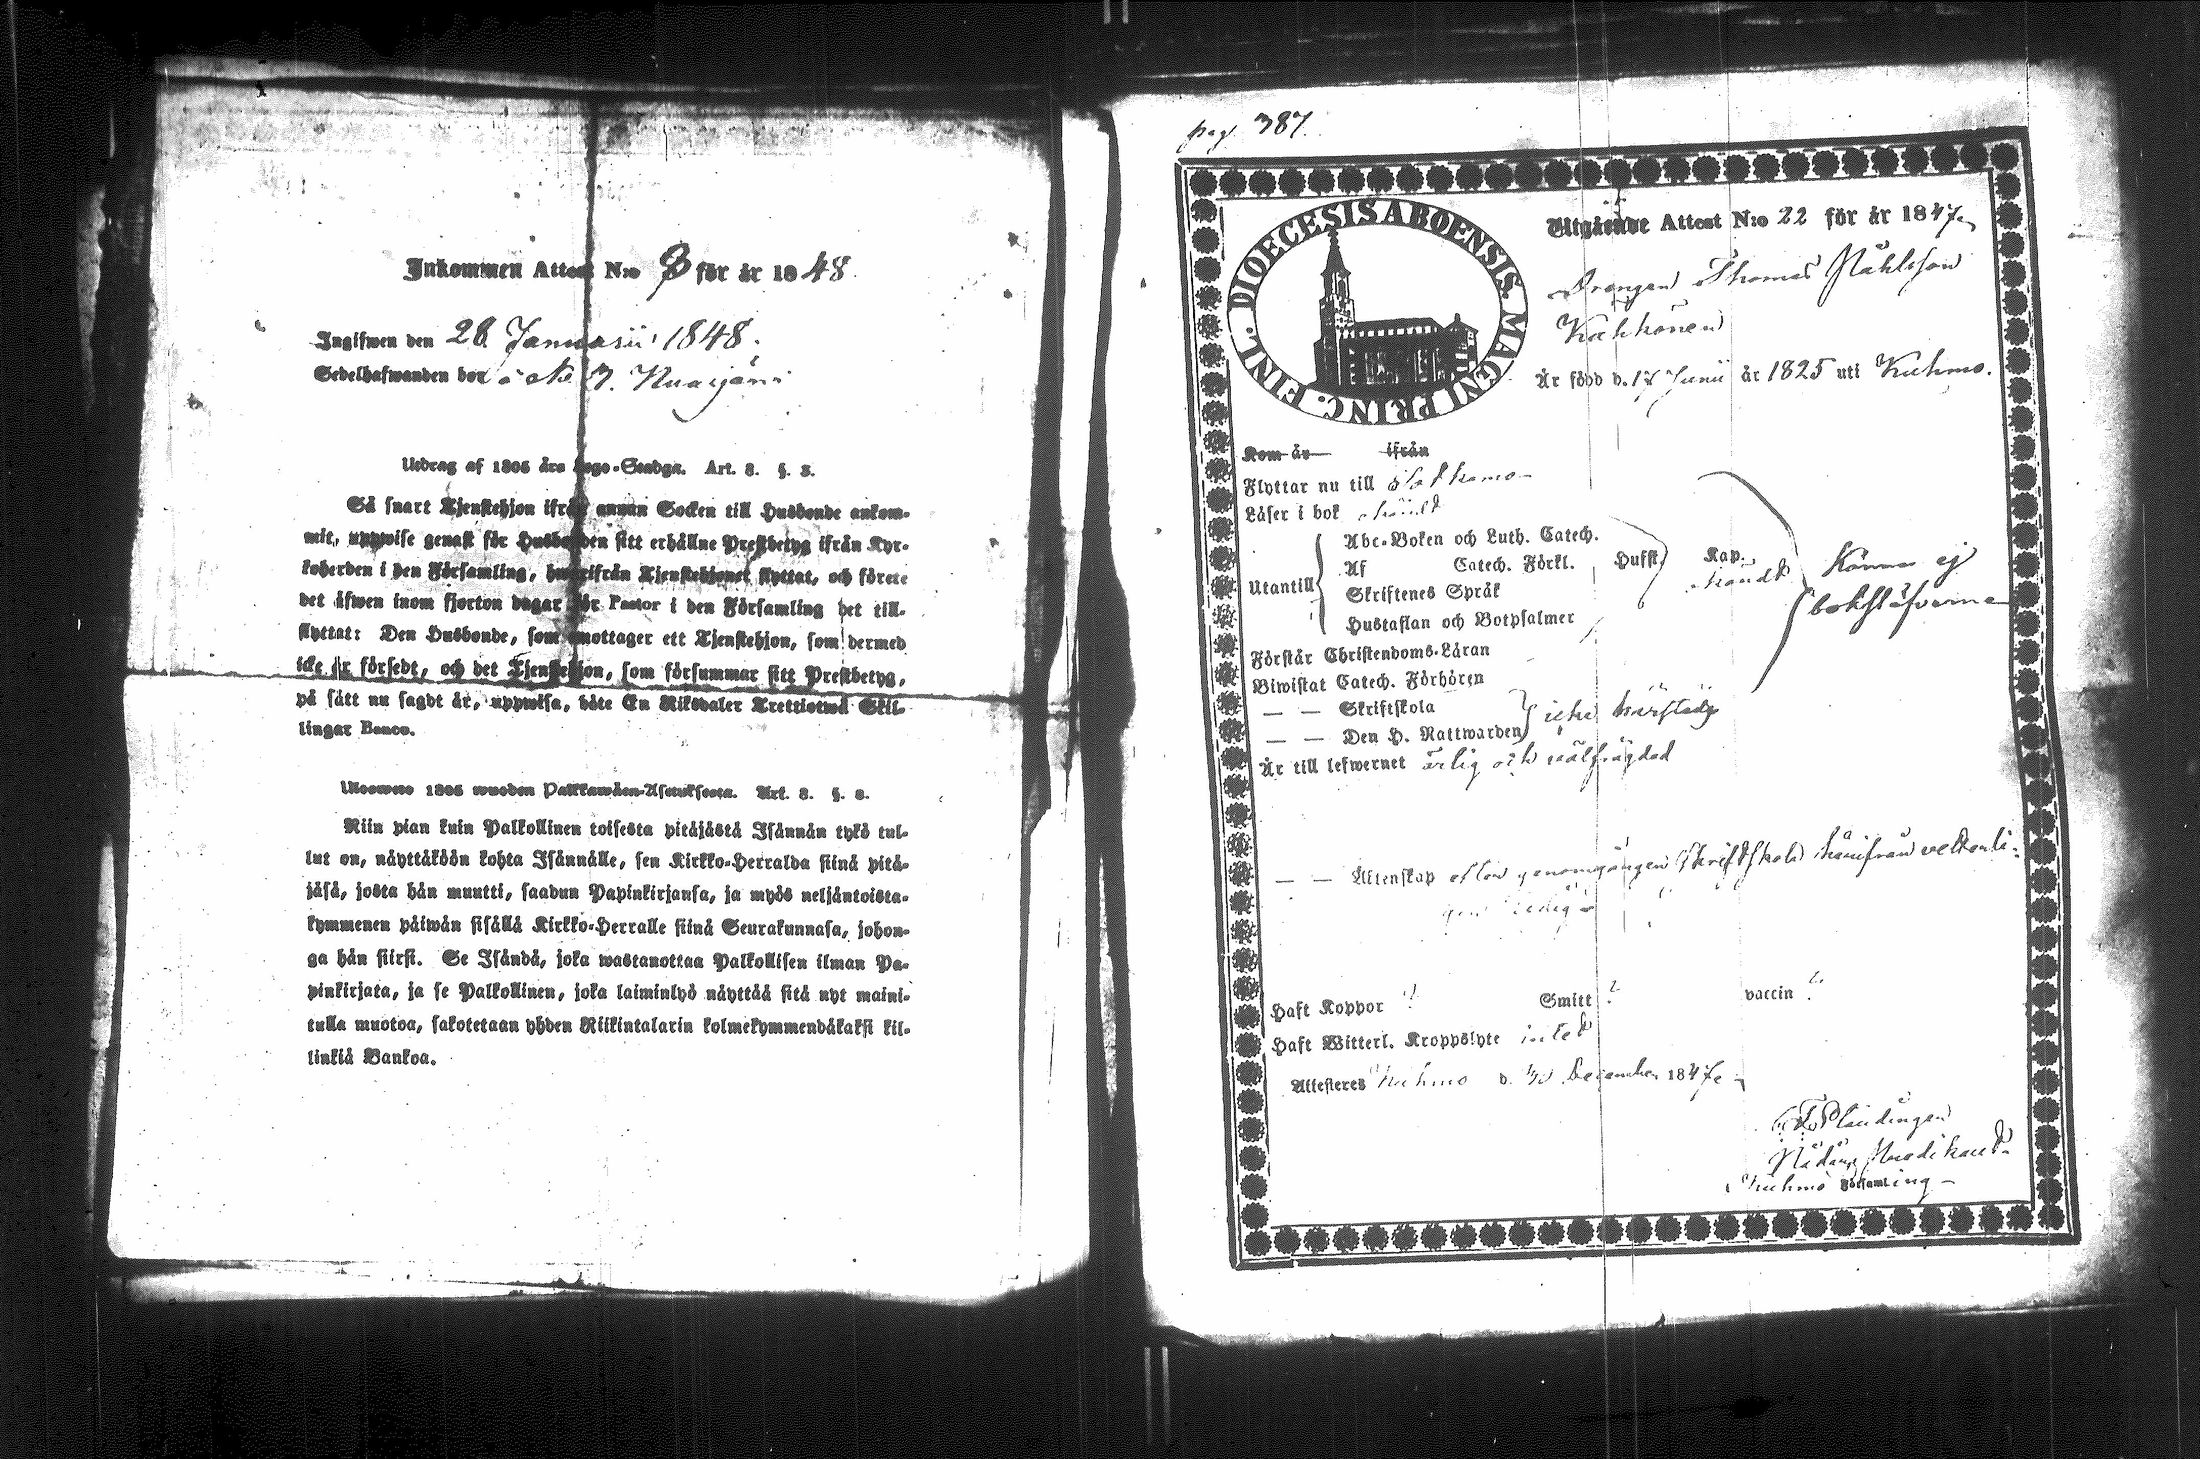 Inkommen Attest N:o 8 för år 1848
Ingifwen den 28 Januarii 1848.
Sedelhafwanden bor å No 7.
Utdrag af 1805 års Lego-Stadga. Art. 8. §. 8.
Så snart Tjenstehjon ifrån annan Socken till Husbonde ankom-
mit, uppwise genast för Husbonden sitt erhållne Prestbetyg ifrån Kyr-
koherden i den Församling, hwarifrån Tjenstehjonet flyttat, och förete
det äfwen inom fjorton dagar för Pastor i den Församling det till-
flyttat: Den Husbonde, som emottager ett Tjenstehjon, som dermed
icke är försedt, och det Tjenstehjon, som försummar sitt Prestbetyg,
på sätt nu sagdt är, uppwisa, böte En Riksdaler Trettiotwå Skil-
lingar Banco.
Ulosweto 1805 wuoden Palkkawäen-Asetuksesta. Art. 8. §. 8.
Niin pian kuin Palkollinen toisesta pitäjästä Isännän tykö tul-
lut on, näyttäköön kohta Isännälle, sen Kirkko-Herralda siinä pitä-
jäsä, josta hän muutti, saadun Papinkirjansa, ja myös neljäntoista-
kymmenen päiwän sisällä Kirkko-Herralle siinä Seurakunnasa, johon-
ga hän siirsi. Se Isändä, joka wastanottaa Palkollisen ilman Pa-
pinkirjata, ja se Palkollinen, joka laiminlyö näyttää sitä nyt maini-
tulla muotoa, sakotetaan yhden Riikintalarin kolmekymmendäkaksi kil-
linkiä Bankoa.
pag. 387.
DIOECESIS ABOENSIS. MAGNI PRINC. FINL.
Utgående Attest N:o 22 för år 1847.
Drengen Thomas Påhlsson
Kähkönen
Är född d. 17 Junii år 1825 uti Kuhmo.
Kom år ifrån
Flyttar nu till Sotkamo
Läser i bok
Abc-Boken och Luth. Catech.
Utantill Af Catech. Förkl. Husst. Kap. Känner ej
Skriftenes Språk bokstäfverne
Hustaflan och Botpsalmer
Förstår Christendoms-Läran
Biwistat Catech. Förhören
— — Skriftskola
— — Den H. Nattwarden icke härstädes
Är till lefwernet ärlig och välfrägdad
— — Äktenskap efter genomgången Skriftskola härifrån veterli-
gen ledig
Haft Koppor ? Smitt ? vaccin ?
Haft Witterl. Kroppslyte intet
Attesteras Kuhmo d. 30 December 1847
Kuhmo Församling